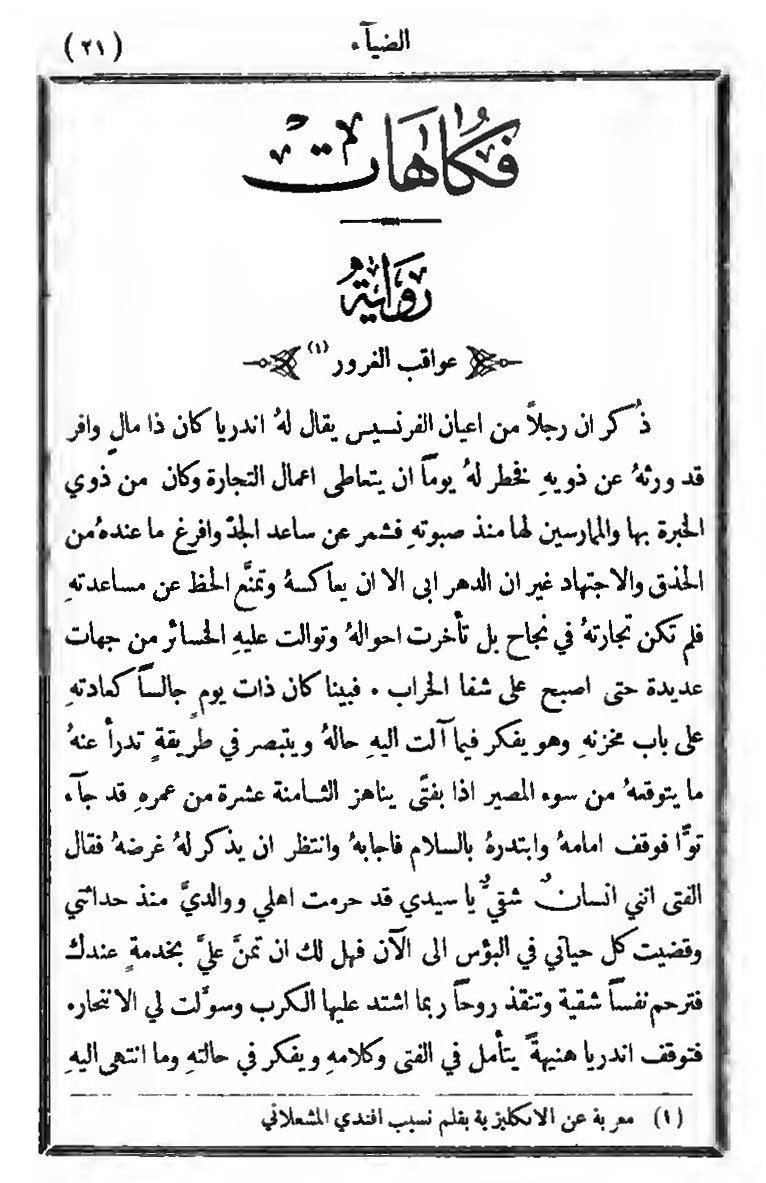 الضيآء
(٢١)
فكاهات
رواية
عواقب الغرور (١)
ذُكر ان رجلاً من اعيان الفرنسيس يقال لهُ اندريا كان ذا مالٍ وافر
قد ورثهُ عن ذويهِ فخطر لهُ يوماً ان يتعاطى اعمال التجارة وكان من ذوي
الخبرة بها والممارسين لها منذ صبوتهِ فشمر عن ساعد الجدّ وافرغ ما عندهُ من
الحذق والاجتهاد غير ان الدهر ابى الا ان يعاكسهُ وتمنَّع الحظ عن مساعدتهِ
فلم تكن تجارتهُ في نجاح بل تأخرت احوالهُ وتوالت عليهِ الخسائر من جهات
عديدة حتى اصبح على شفا الخراب . فبينا كان ذات يومٍ جالساً كعادتهِ
على باب مخزنهِ وهو يفكر فيما آلت اليهِ حالهُ ويتبصر في طريقةٍ تدرأ عنهُ
ما يتوقعهُ من سوء المصير اذا بفتًى يناهز الثامنة عشرة من عمرهِ قد جآء
توًّا فوقف امامهُ وابتدرهُ بالسلام فاجابهُ وانتظر ان يذكر لهُ غرضهُ فقال
الفتى انني انسانٌ شقيٌّ يا سيدي قد حرمت اهلي ووالديَّ منذ حداثتي
وقضيت كل حياتي في البؤس الى الآن فهل لك ان تمنَّ عليَّ بخدمةٍ عندك
فترحم نفساً شقية وتنقذ روحاً ربما اشتد عليها الكرب وسوَّلت لي الانتحار.
فتوقف اندريا هنيهةً يتأمل في الفتى وكلامهِ ويفكر في حالتهِ وما انتهى اليهِ
(١) معربة عن الانكليزية بقلم نسيب افندي المشعلاني